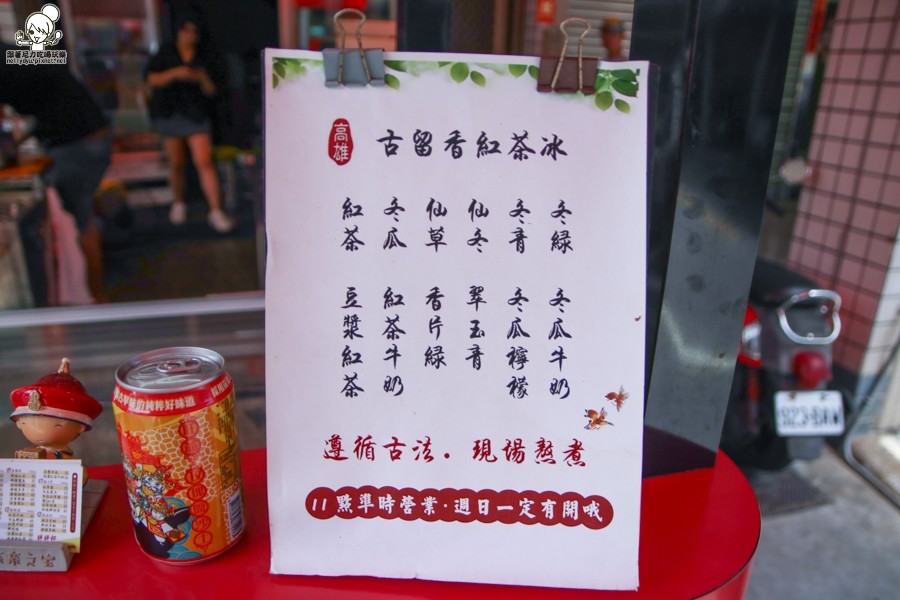 跟著尼力吃喝玩樂
高雄
古留香紅茶冰
冬綠
冬青
仙冬
仙草
冬瓜
紅茶
冬瓜牛奶
冬瓜檸檬
翠玉青
香片綠
紅茶牛奶
豆漿紅茶
遵循古法．現場熬煮
11點準時營業·週日一定有開哦